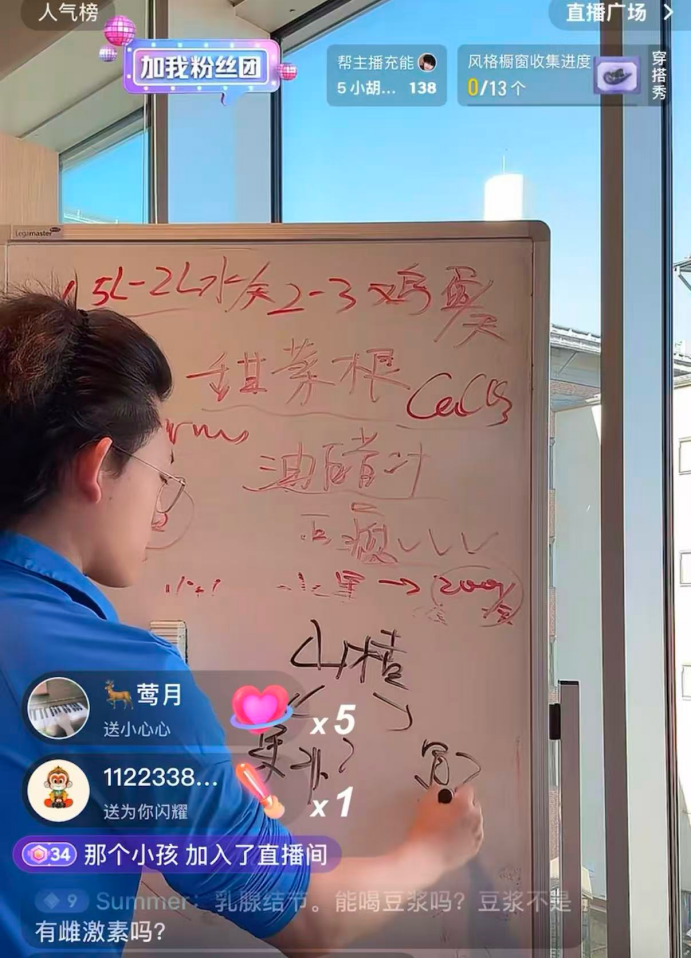 人气榜
直播广场 >
加我粉丝团
帮主播充能
5 小胡... 138
风格橱窗收集进度
0/13 个
穿搭秀
Legamaster
5L-2L水/天 2-3 鸡蛋/天
甜菜根
CaCl3
油醋汁
豆浆
200g/天
山楂
莺月
送小心心
x5
1122338...
送为你闪耀
x1
34 那个小孩 加入了直播间
9 Summer：乳腺结节。能喝豆浆吗？豆浆不是有雌激素吗？